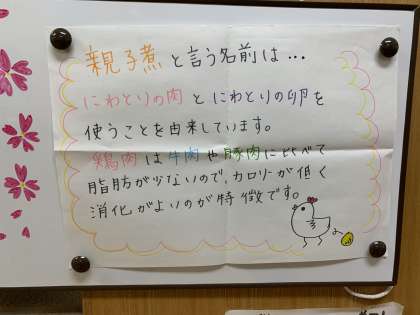 親子煮と言う名前は…
にわとりの肉とにわとりの卵を
使うことを由来しています。
鶏肉は牛肉や豚肉に比べて
脂肪が少ないので、カロリーが低く
消化がよいのが特徴です。